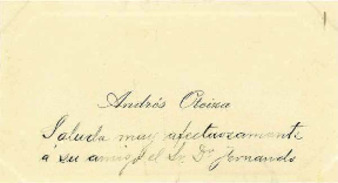 Andrés Oteiza
Saluda muy afectuosamente
á su amigo el Sr. Dn Fernando